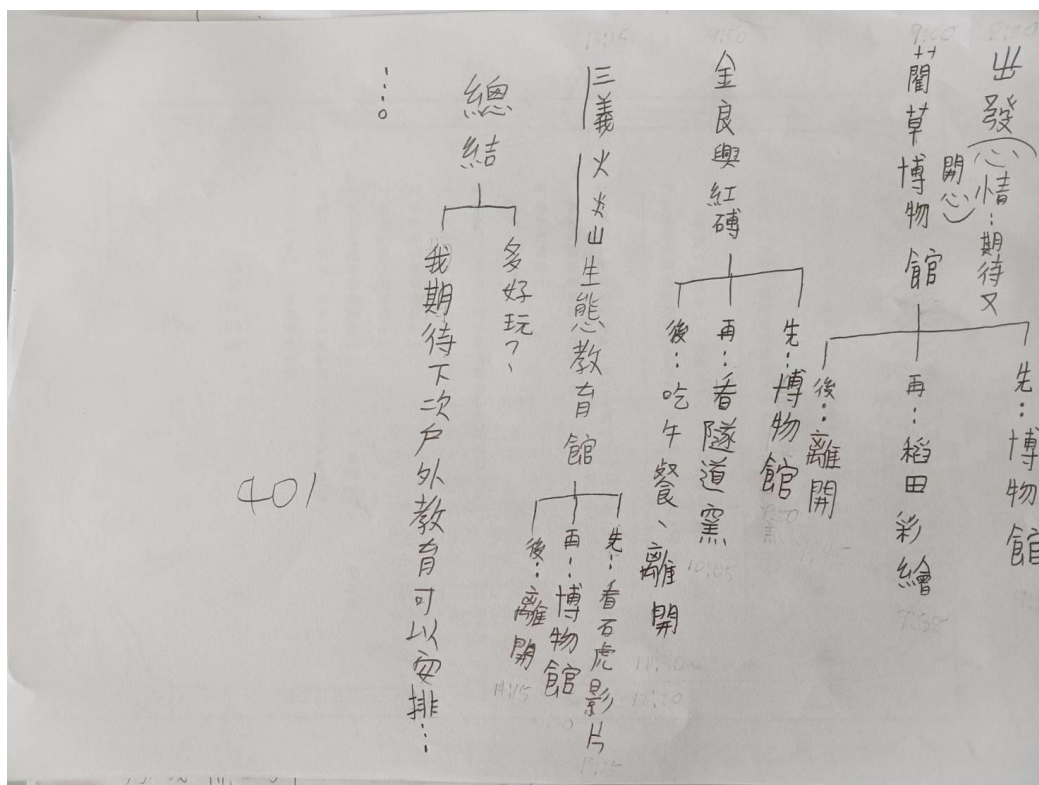 出發(心情:期待又
開心)
藺草博物館
先:博物館
再:稻田彩繪
後:離開
金良興紅磚
先:博物館
再:看隧道窯
後:吃午餐、離開
三義火炎山生態教育館
先:看石虎影片
再:博物館
後:離開
總結
多好玩?、
我期待下次戶外教育可以安排…
…。
401